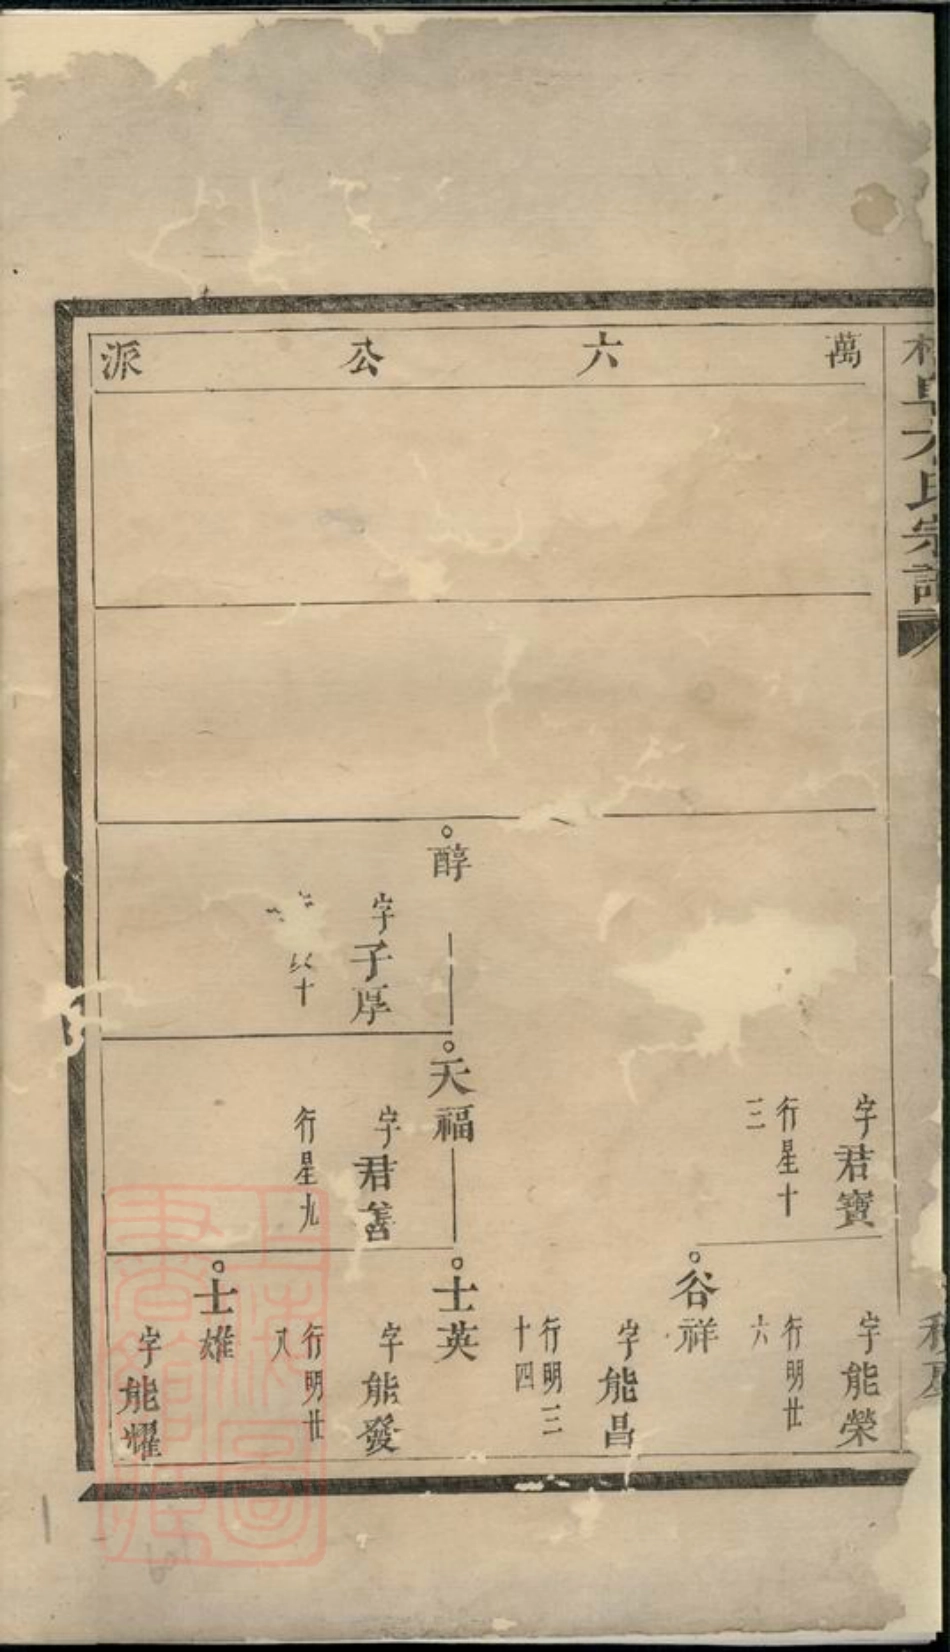 萬六公派
宗譜
字君寶
行星十
三
字能榮
行明廿
六
谷祥
字能昌
行明三
十四
醇
字子厚
十
天福
字君善
行星九
士英
字能發
行明廿
八
士雄
字能耀
上海圖書館藏